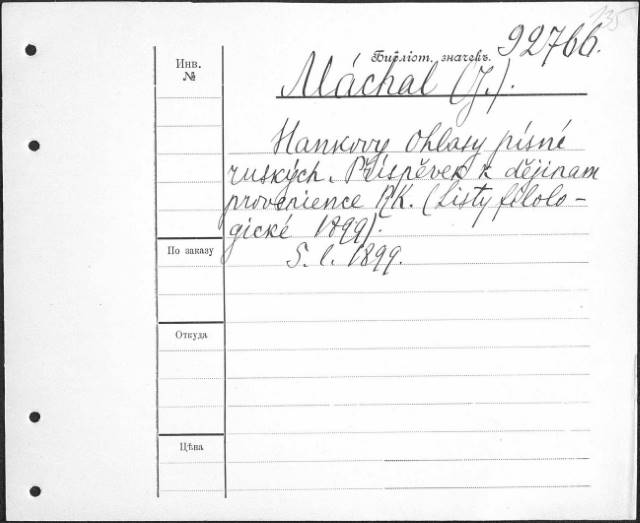 135
Инв.
№
Библіот. значекъ. 92766.
Máchal (J.).
Hankovy Ohlasy písně
ruských. Příspěvek k dějinam
provenience RK. (Listy filolo-
gické 1899).
S. l. 1899.
По заказу
Откуда
Цѣна